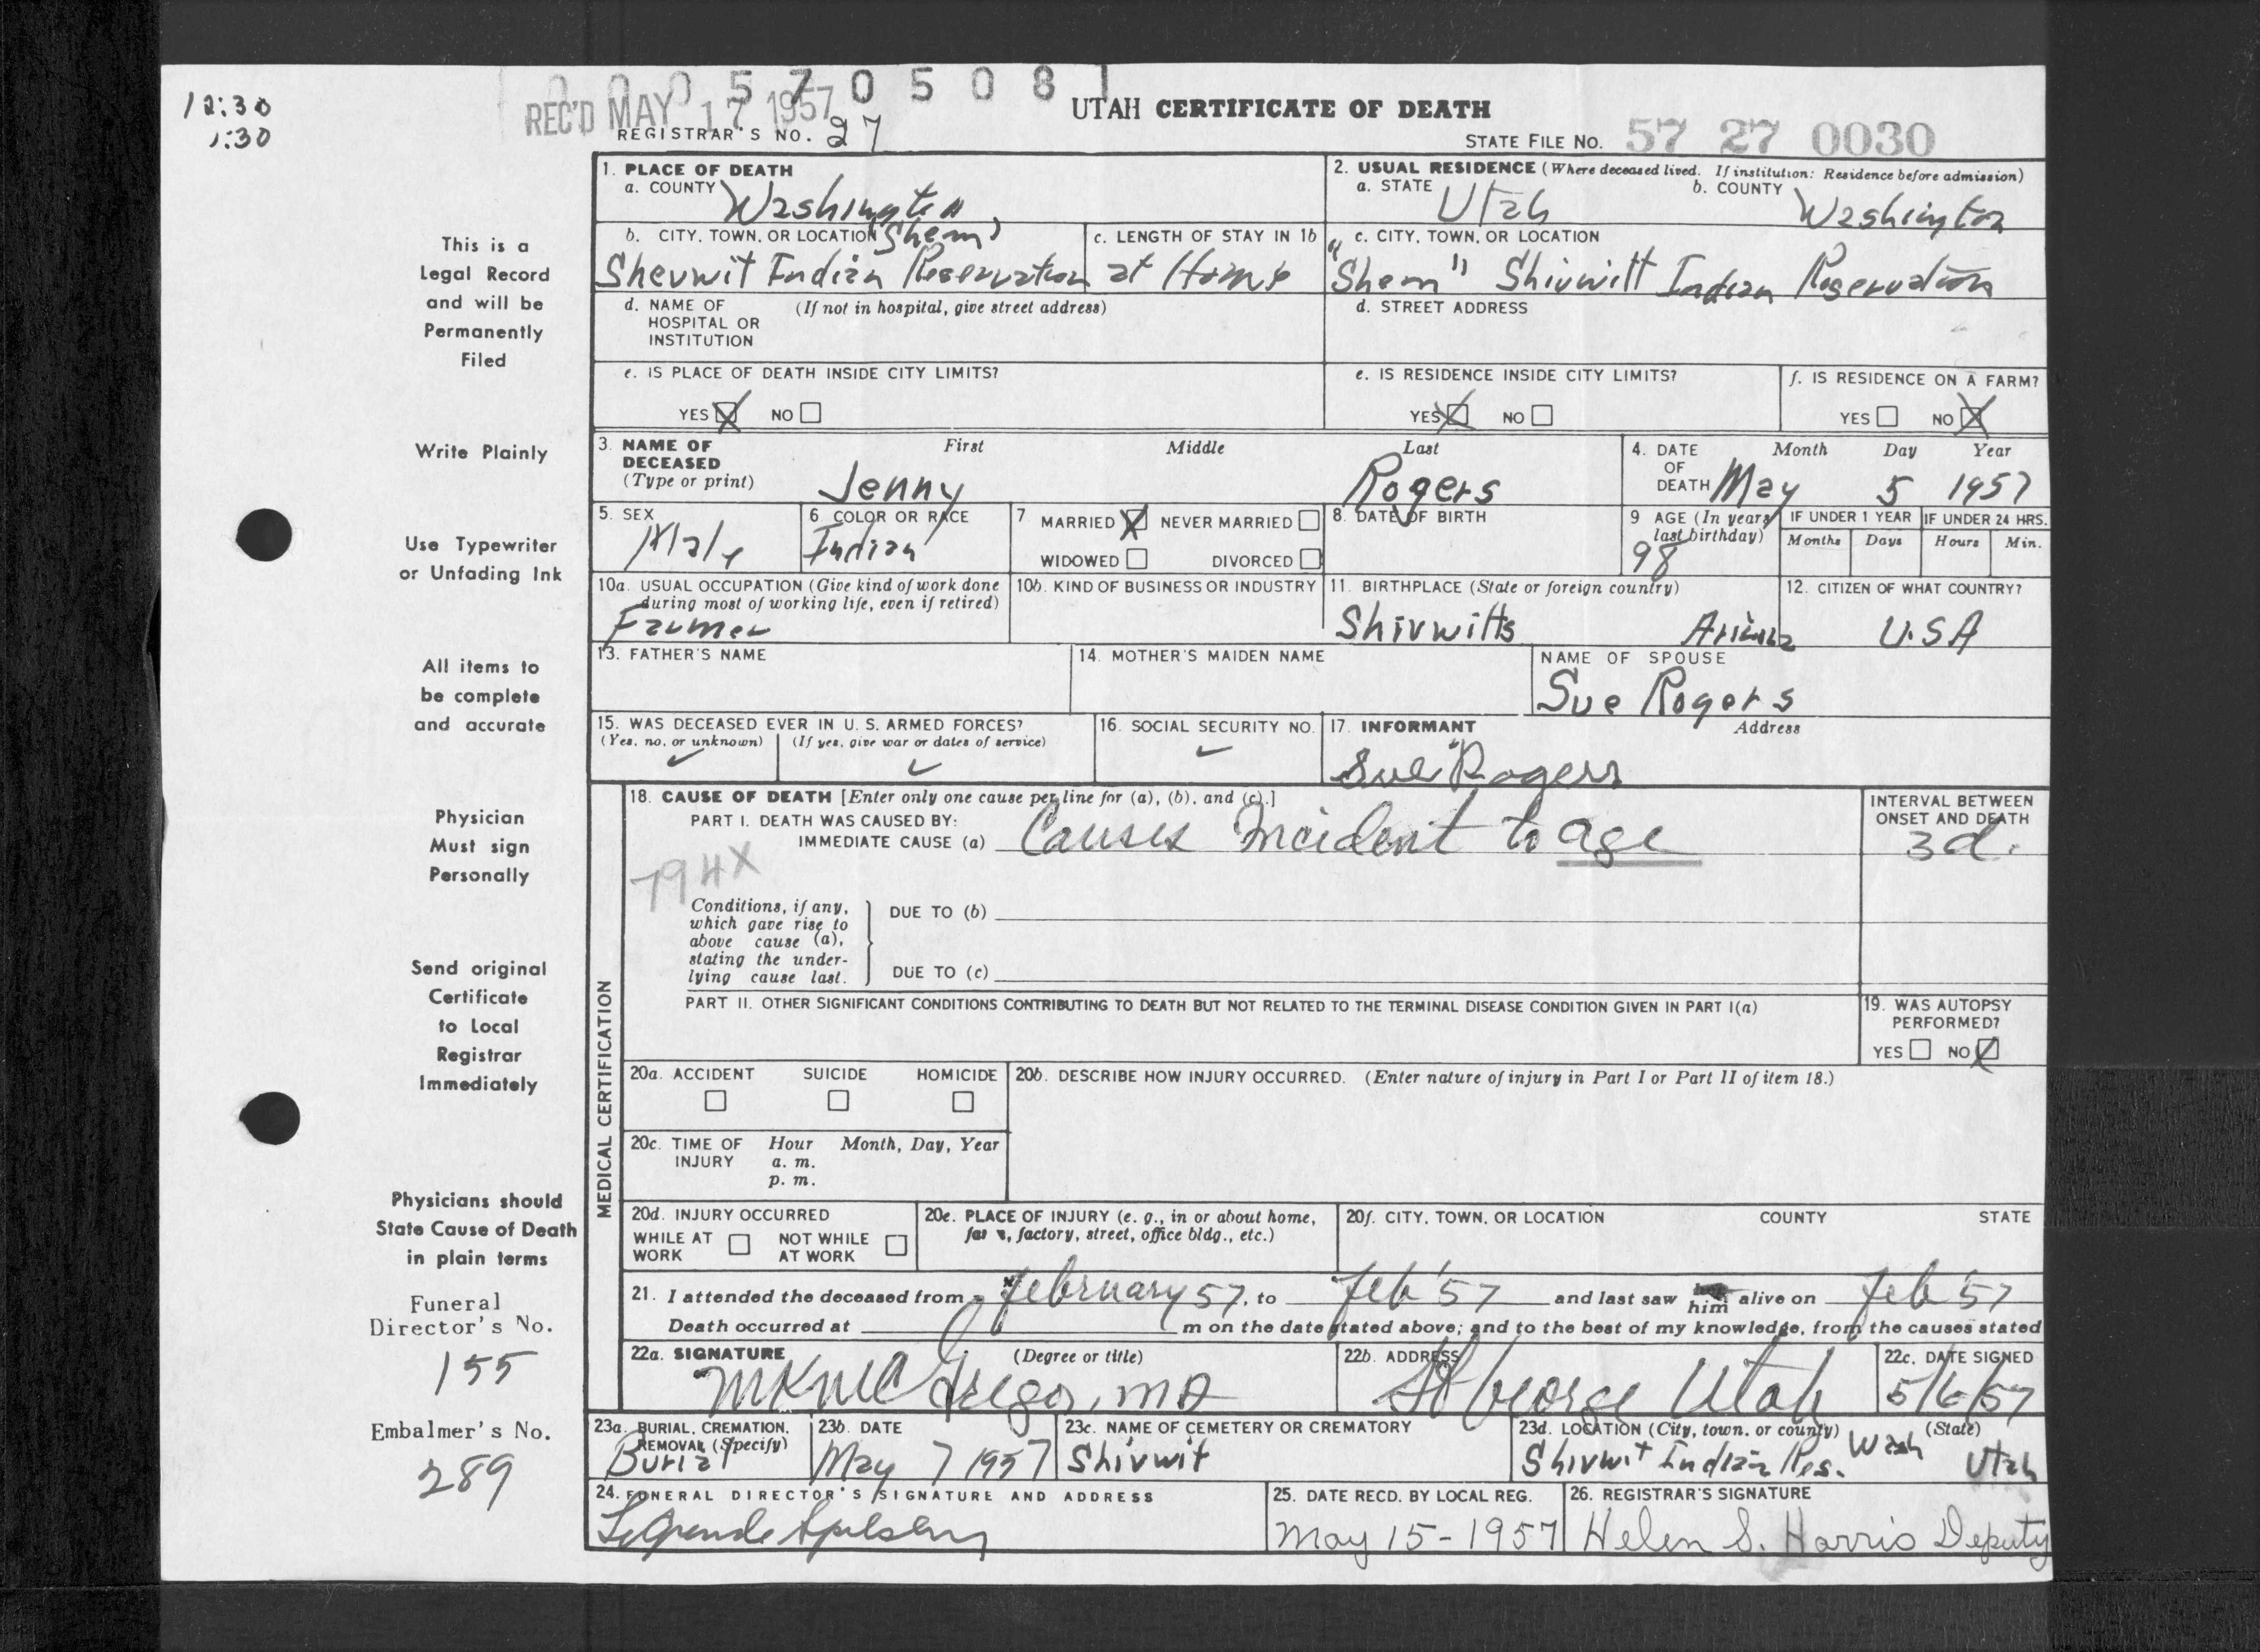 12:30
1:30
0 0 0 5 7 0 5 0 8 1
REC'D MAY 17 1957
UTAH CERTIFICATE OF DEATH
REGISTRAR'S NO. 27
STATE FILE NO. 57 27 0030
This is a
Legal Record
and will be
Permanently
Filed
Write Plainly
Use Typewriter
or Unfading Ink
All items to
be complete
and accurate
Physician
Must sign
Personally
Send original
Certificate
to Local
Registrar
Immediately
Physicians should
State Cause of Death
in plain terms
Funeral
Director's No.
155
Embalmer's No.
289
1. PLACE OF DEATH
a. COUNTY Washington
2. USUAL RESIDENCE (Where deceased lived. If institution: Residence before admission)
a. STATE Utah b. COUNTY Washington
b. CITY, TOWN, OR LOCATION "Shem"
Shevwit Indian Reservation
c. LENGTH OF STAY IN 1b
at Home
c. CITY, TOWN, OR LOCATION
"Shem" Shivwitt Indian Reservation
d. NAME OF (If not in hospital, give street address)
HOSPITAL OR
INSTITUTION
d. STREET ADDRESS
e. IS PLACE OF DEATH INSIDE CITY LIMITS?
YES X NO
e. IS RESIDENCE INSIDE CITY LIMITS?
YES X NO
f. IS RESIDENCE ON A FARM?
YES NO X
3. NAME OF First Middle Last
DECEASED
(Type or print) Jenny Rogers
4. DATE Month Day Year
OF
DEATH May 5 1957
5. SEX
Male
6. COLOR OR RACE
Indian
7. MARRIED X NEVER MARRIED
WIDOWED DIVORCED
8. DATE OF BIRTH
9. AGE (In years
last birthday)
98
IF UNDER 1 YEAR
Months Days
IF UNDER 24 HRS.
Hours Min.
10a. USUAL OCCUPATION (Give kind of work done
during most of working life, even if retired)
Farmer
10b. KIND OF BUSINESS OR INDUSTRY
11. BIRTHPLACE (State or foreign country)
Shivwitts Arizona
12. CITIZEN OF WHAT COUNTRY?
U.S.A
13. FATHER'S NAME
14. MOTHER'S MAIDEN NAME
NAME OF SPOUSE
Sue Rogers
15. WAS DECEASED EVER IN U. S. ARMED FORCES?
(Yes, no, or unknown) (If yes, give war or dates of service)
✓ ✓
16. SOCIAL SECURITY NO.
✓
17. INFORMANT Address
Sue Rogers
MEDICAL CERTIFICATION
18. CAUSE OF DEATH [Enter only one cause per line for (a), (b), and (c).]
PART I. DEATH WAS CAUSED BY:
IMMEDIATE CAUSE (a) Causes Incident to age
INTERVAL BETWEEN
ONSET AND DEATH
3d.
794X
Conditions, if any,
which gave rise to
above cause (a),
stating the under-
lying cause last.
DUE TO (b)
DUE TO (c)
PART II. OTHER SIGNIFICANT CONDITIONS CONTRIBUTING TO DEATH BUT NOT RELATED TO THE TERMINAL DISEASE CONDITION GIVEN IN PART I(a)
19. WAS AUTOPSY
PERFORMED?
YES NO X
20a. ACCIDENT SUICIDE HOMICIDE
20b. DESCRIBE HOW INJURY OCCURRED. (Enter nature of injury in Part I or Part II of item 18.)
20c. TIME OF Hour Month, Day, Year
INJURY a. m.
p. m.
20d. INJURY OCCURRED
WHILE AT NOT WHILE
WORK AT WORK
20e. PLACE OF INJURY (e. g., in or about home,
farm, factory, street, office bldg., etc.)
20f. CITY, TOWN, OR LOCATION COUNTY STATE
21. I attended the deceased from February 57, to Feb '57 and last saw him alive on Feb '57
Death occurred at m on the date stated above; and to the best of my knowledge, from the causes stated
22a. SIGNATURE (Degree or title)
MK McGregor, MD
22b. ADDRESS
St George Utah
22c. DATE SIGNED
5/6/57
23a. BURIAL, CREMATION,
REMOVAL (Specify)
Burial
23b. DATE
May 7 1957
23c. NAME OF CEMETERY OR CREMATORY
Shivwit
23d. LOCATION (City, town, or county) (State)
Shivwit Indian Res. Wash Utah
24. FUNERAL DIRECTOR'S SIGNATURE AND ADDRESS
25. DATE RECD. BY LOCAL REG.
May 15-1957
26. REGISTRAR'S SIGNATURE
Helen S. Harris Deputy